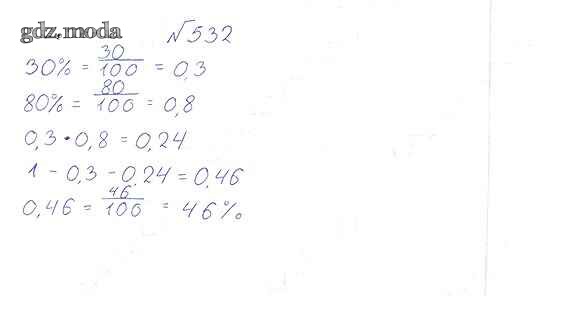 gdz.moda
№532
30% = 30/100 = 0,3
80% = 80/100 = 0,8
0,3 • 0,8 = 0,24
1 - 0,3 - 0,24 = 0,46
0,46 = 46/100 = 46%